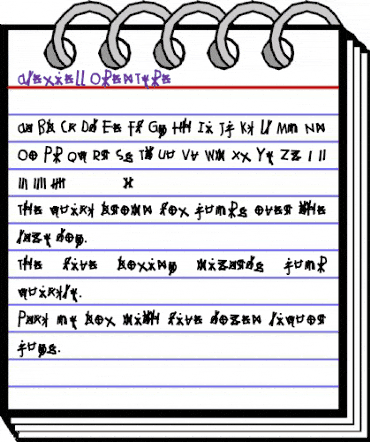 Alexxell OpenType
Aa Bb Cc Dd Ee Ff Gg Hh Ii Jj Kk Ll Mm Nn
Oo Pp Qq Rr Ss Tt Uu Vv Ww Xx Yy Zz I II
III IIII
The quick brown fox jumps over the
lazy dog.
The five boxing wizards jump
quickly.
Pack my box with five dozen liquor
jugs.